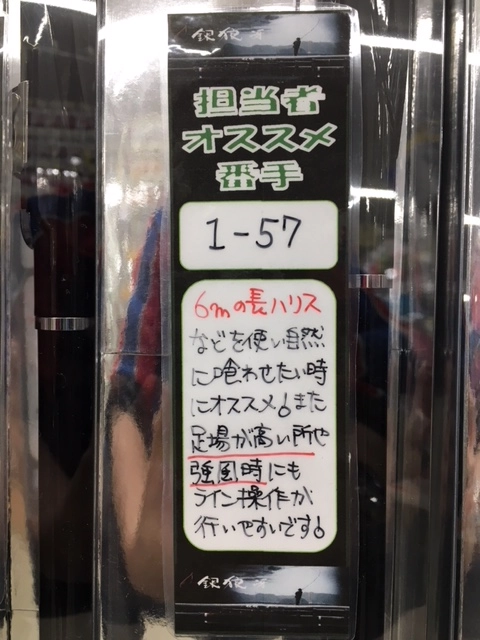 担当者
オススメ
番手
1-57
6mの長ハリス
などを使い自然
に喰わせたい時
にオススメ!また
足場が高い所や
強風時にも
ライン操作が
行いやすいです!